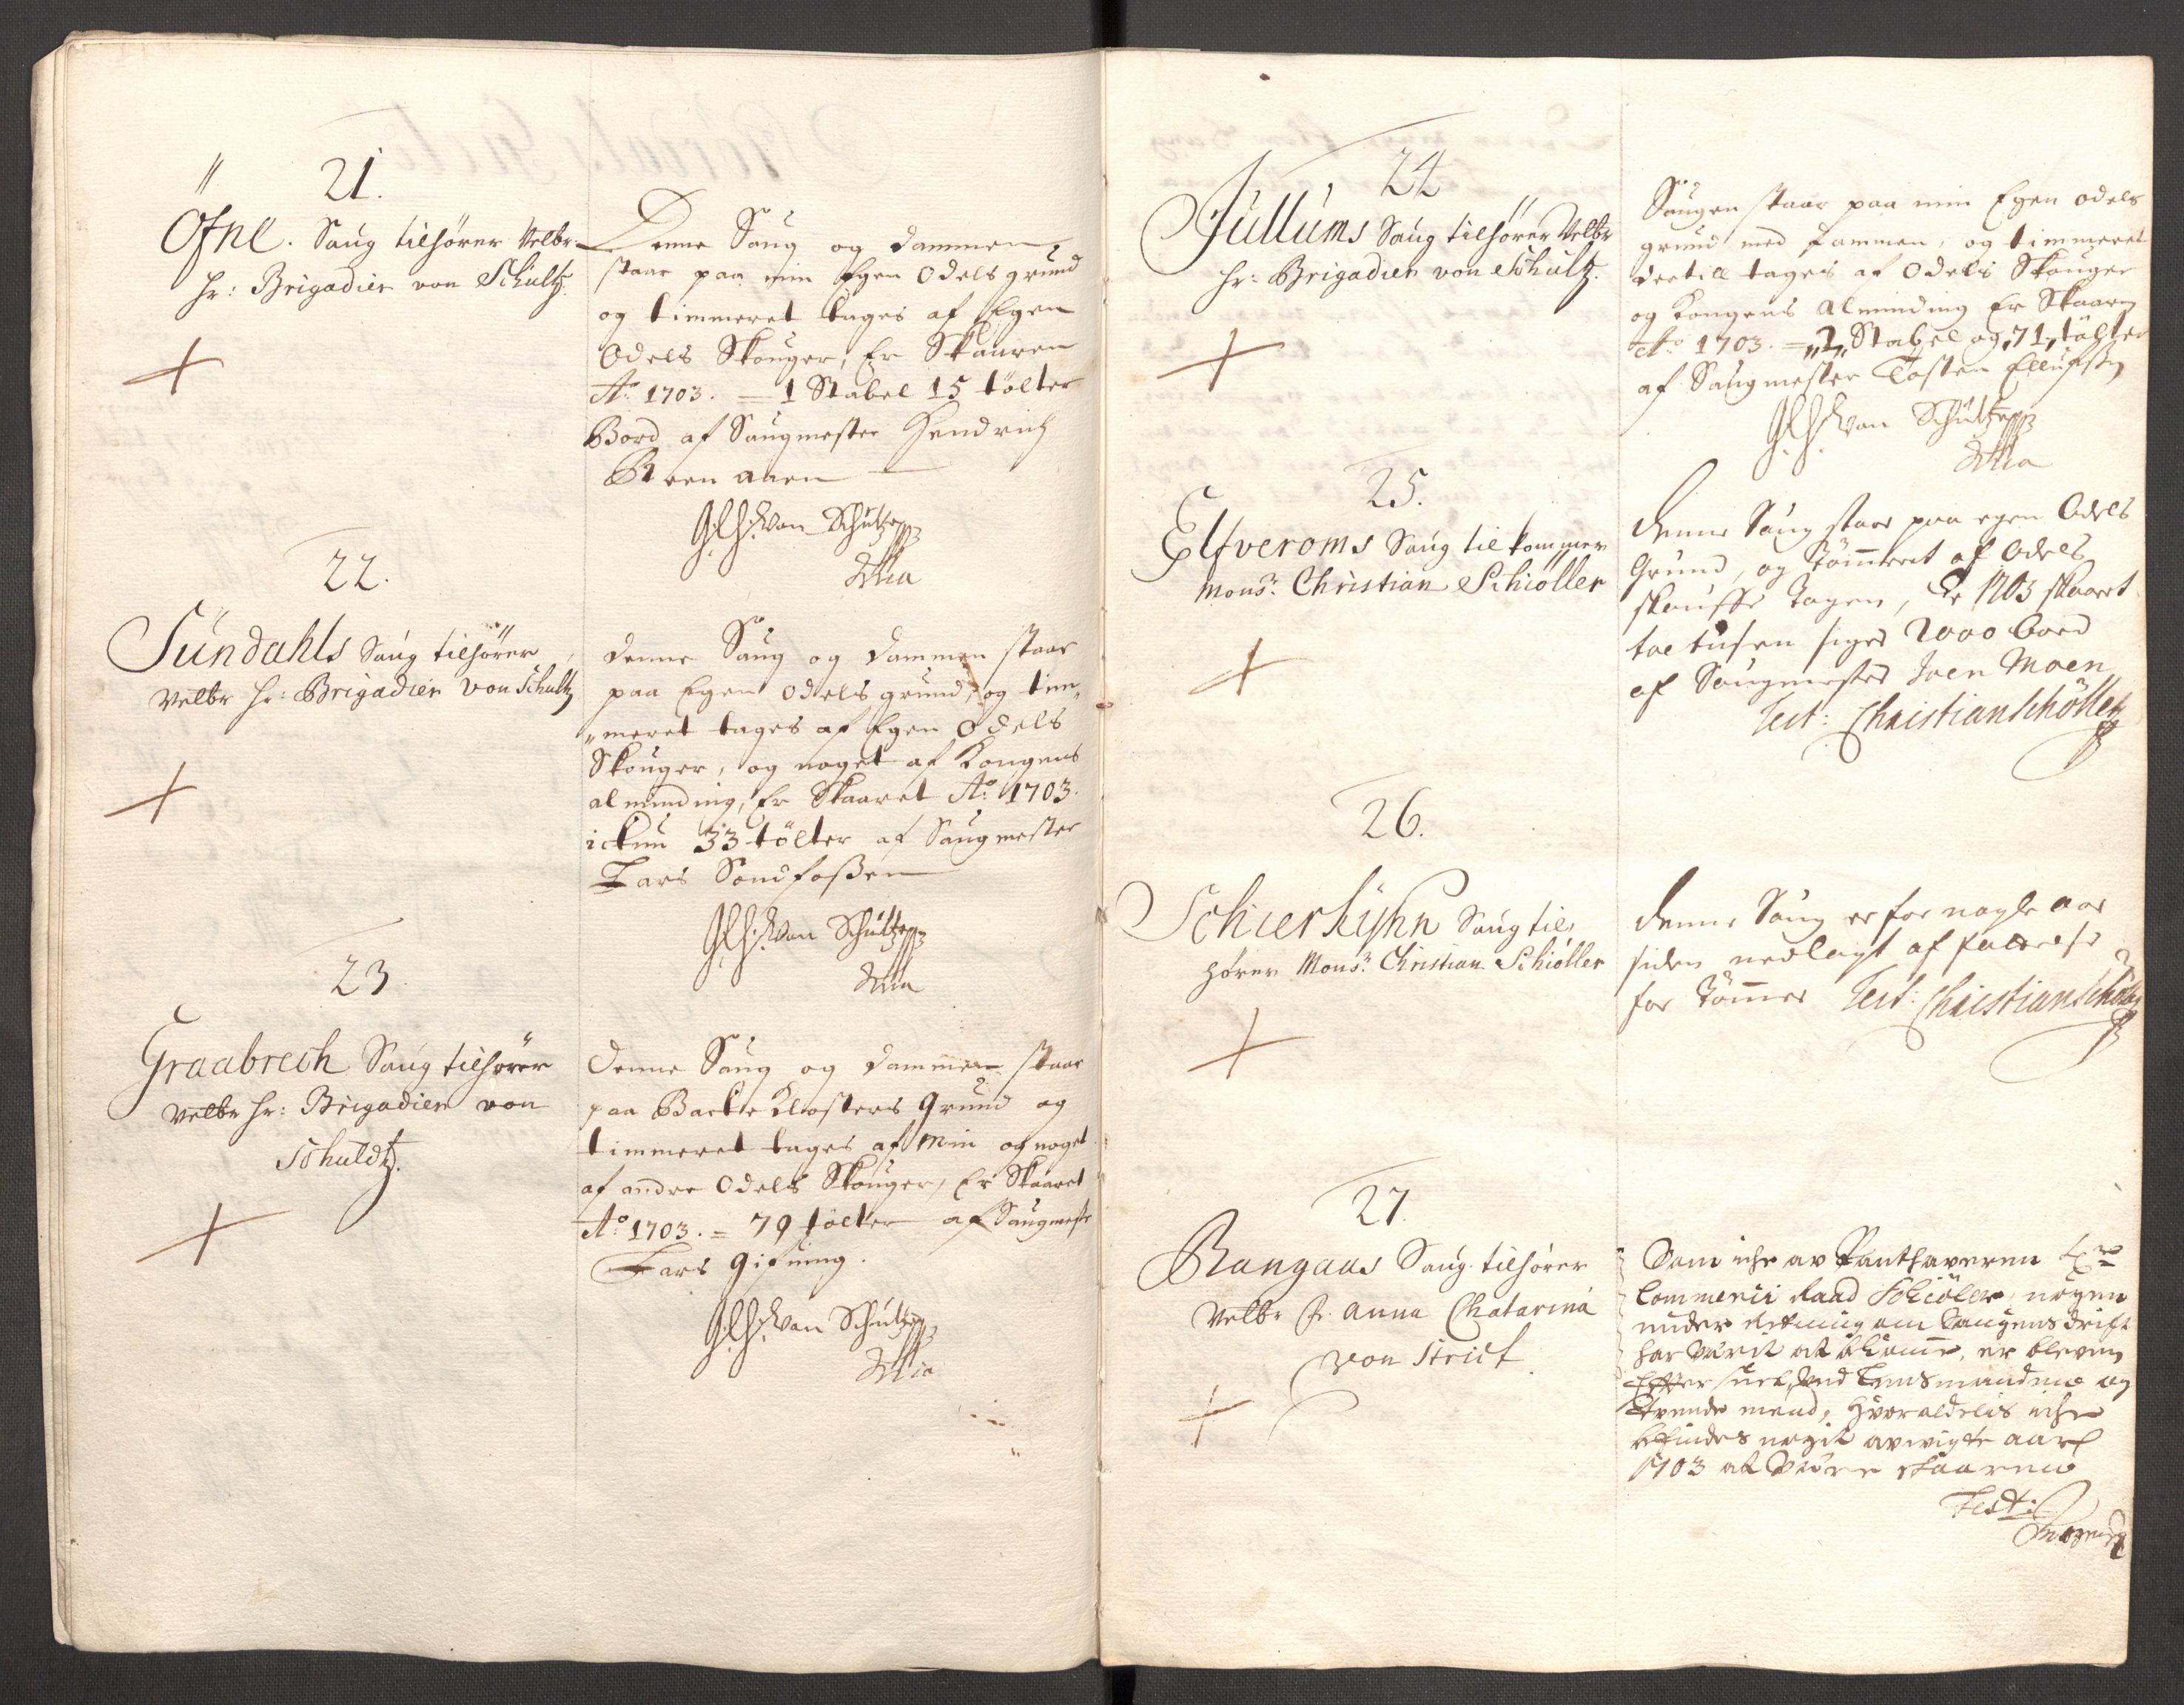 21.
Ofne. Saug tilhører Velbr.
hr: Brigadier von Schultz.
Denne Saug og Dammen
staar paa min Egen Odels grund
og timmeret tages af Egen
Odels Skouger, Er Skauren
Ao 1703. = 1 Stabel 15 tölter
Bord af Saugmester Hendrich
von Schultz
Mia
22.
Sundahls Saug tilhører
Velbr hr: Brigadier von Schultz
Denne Saug og Dammen staar
paa Egen Odels grund, og tim„
„meret tages af Egen Odels
Skouger, og noget af Kongens
alminding, Er Skaaret Ao 1703.
ickun 33 tölter af Saugmester
Lars
von Schultz
Mia
23
Graabrech Saug tilhører
Velbr hr: Brigadier von
Schuldtz.
Denne Saug og Dammen staar
paa Backe Klosters Grund og
timmeret tages af Min og noget
af andre Odels Skouger, Er Skaaret
Ao 1703. = 79 tölter af Saugmestr
Lars
von Schultz
Mia
24
Jullums Saug tilhører Velbr
hr: Brigadier von Schultz.
Saugen staar paa min Egen odels
grund med Dammen, og timmeret
dertill tages af Odels Skouger
og Kongens Alminding Er Skaaren
Ao 1703. = „2„ Stabel og „71„ tölter
af Saugmester Tosten
von Schultz
Mia
25.
Elfveroms Saug tilkommer
Monsr. Christian Schiøller
Denne Saug staar paa egen Odels
Grund, og Tømmeret af Odels
Tagen, Er 1703 skaaret
toe tusen siger 2000 bord
af Saugmester Joen Moen
Test: Christian Schöller
26.
Schierkyhn Saug til„
hører Monsr. Christian Schiøller
Denne Saug er for nogle aar
siden nedlagt af
for Tømmer Test: Christian Schöller
27.
Rangaas Saug tilhører
Velbr fr. Anna Chatarina
von Strict
Som iche av Panthaveren
Commerci Raad Schiöler, nogen
underretning om Saugens drift
har været at bekomme, er bleven
ved Lensmanden og
Tvende mend, hvor aldeles iche
befindes noget avvigte aar
1703 at være skaaren
Test: